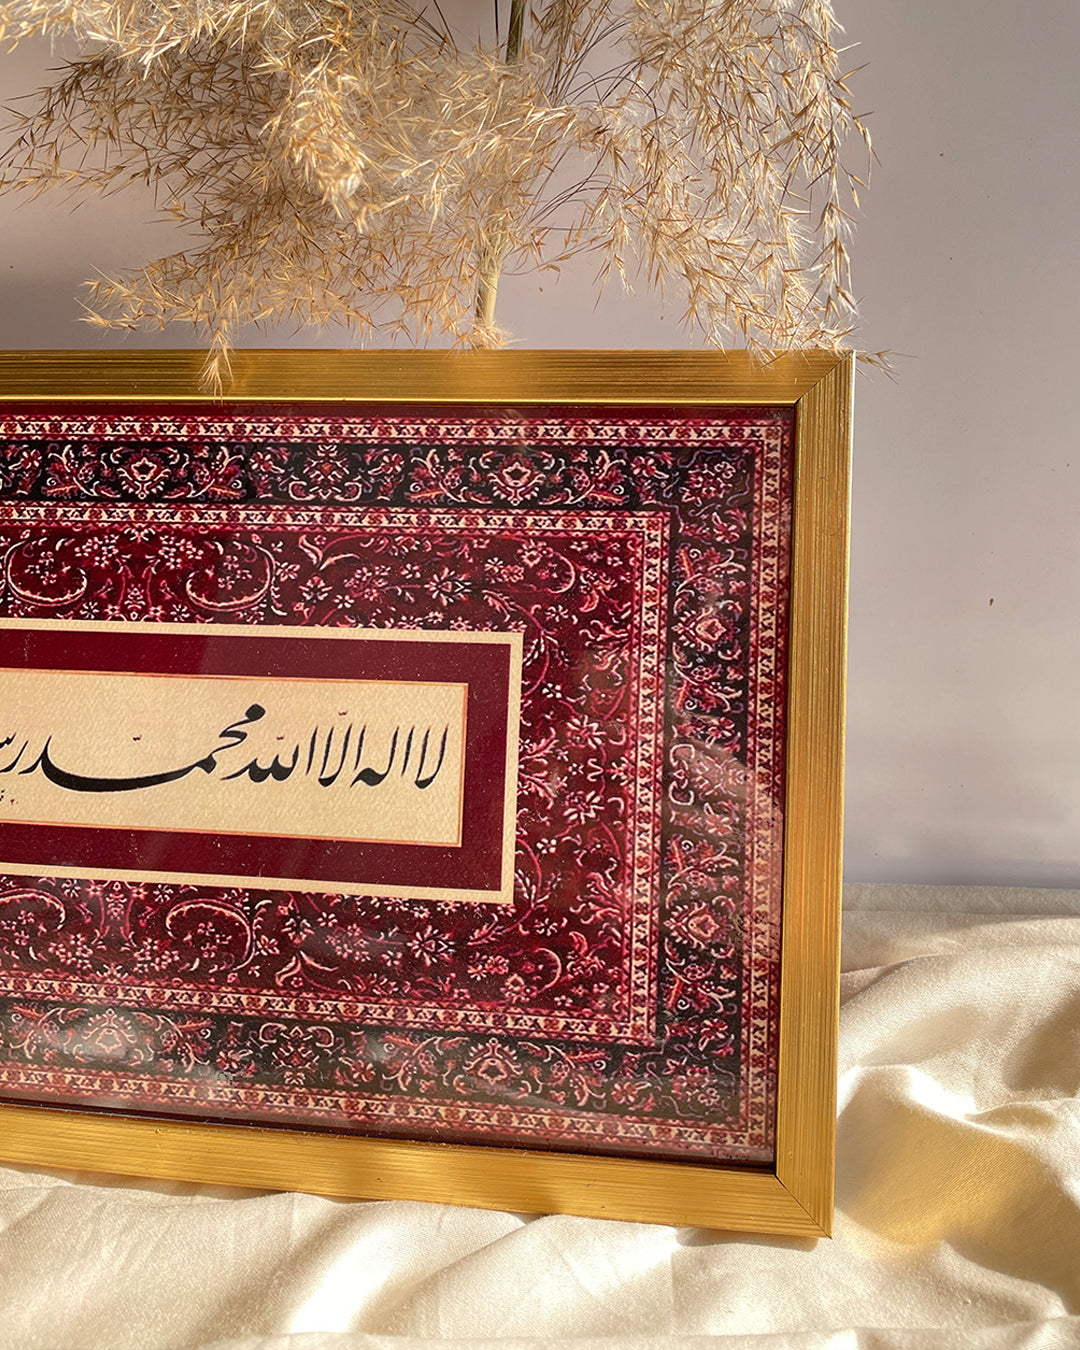 لا اله الا الله محمد رس